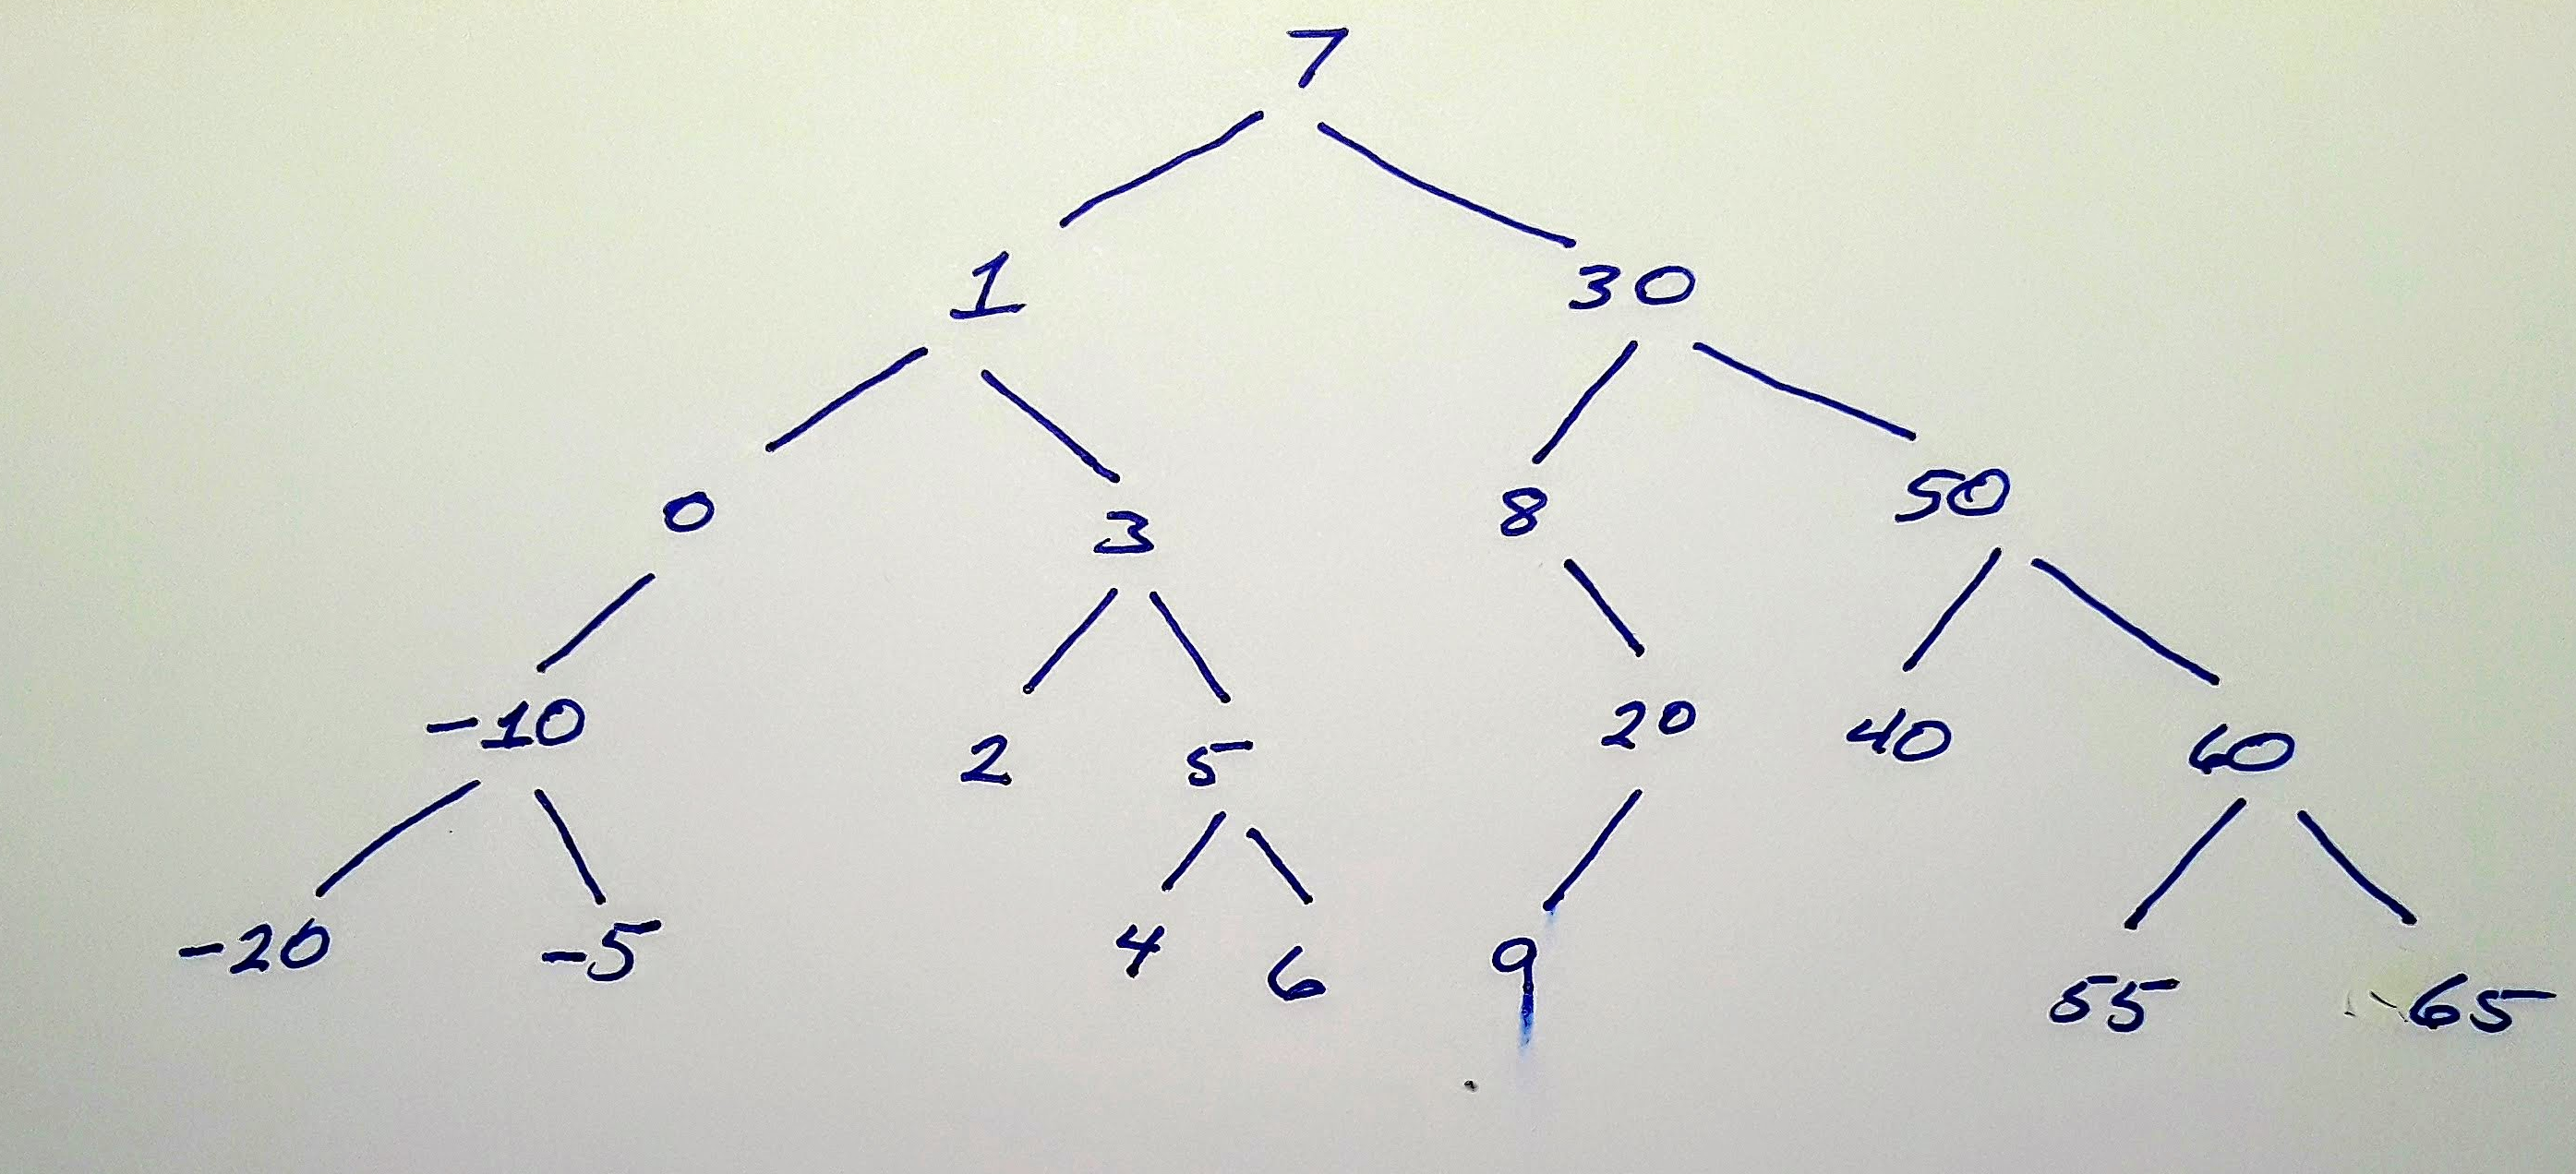 7
1 30
0 3 8 50
-10 2 5 20 40 60
-20 -5 4 6 9 55 65